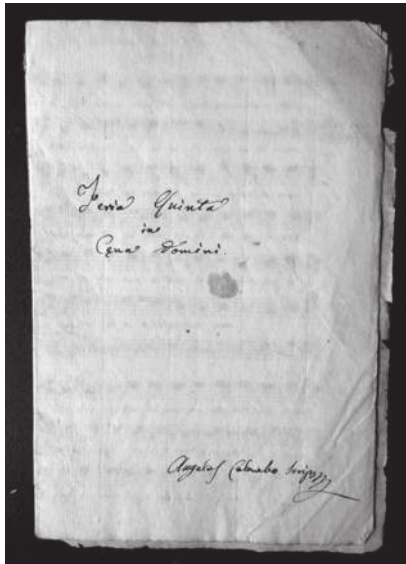 Feria Quinta
in
Cęna Domini.
Angelus Calnabo